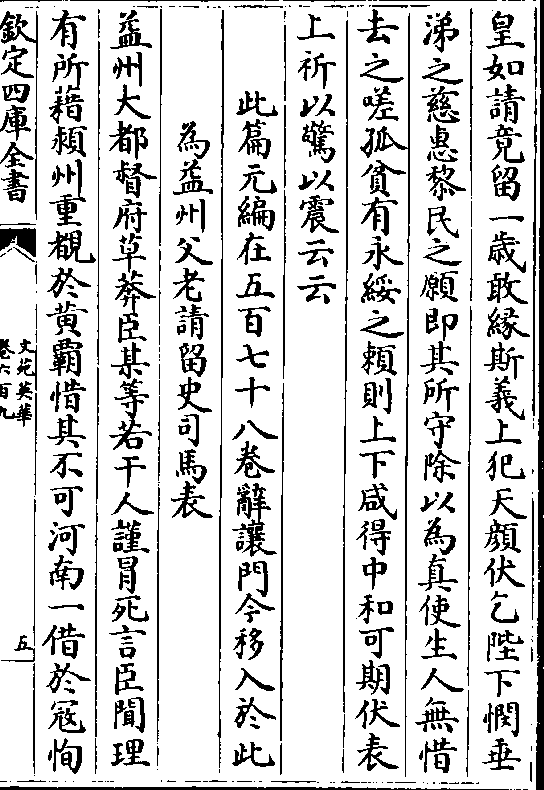 皇如請竟留一歳敢緣斯義上犯天顏伏乞陛下憫垂
涕之慈惠黎民之願即其所守除以為真使生人無惜
去之嗟孤貧有永綏之賴則上下咸得中和可期伏表
上祈以驚以震云云
此篇元編在五百七十八卷辭讓門今移入於此
為益州父老請留史司馬表
益州大都督府草莽臣某等若干人謹冒死言臣聞理
有所藉潁州重覩於黄霸惜其不可河南一借於寇恂
欽定四庫全書
文苑英華
卷六百九
五